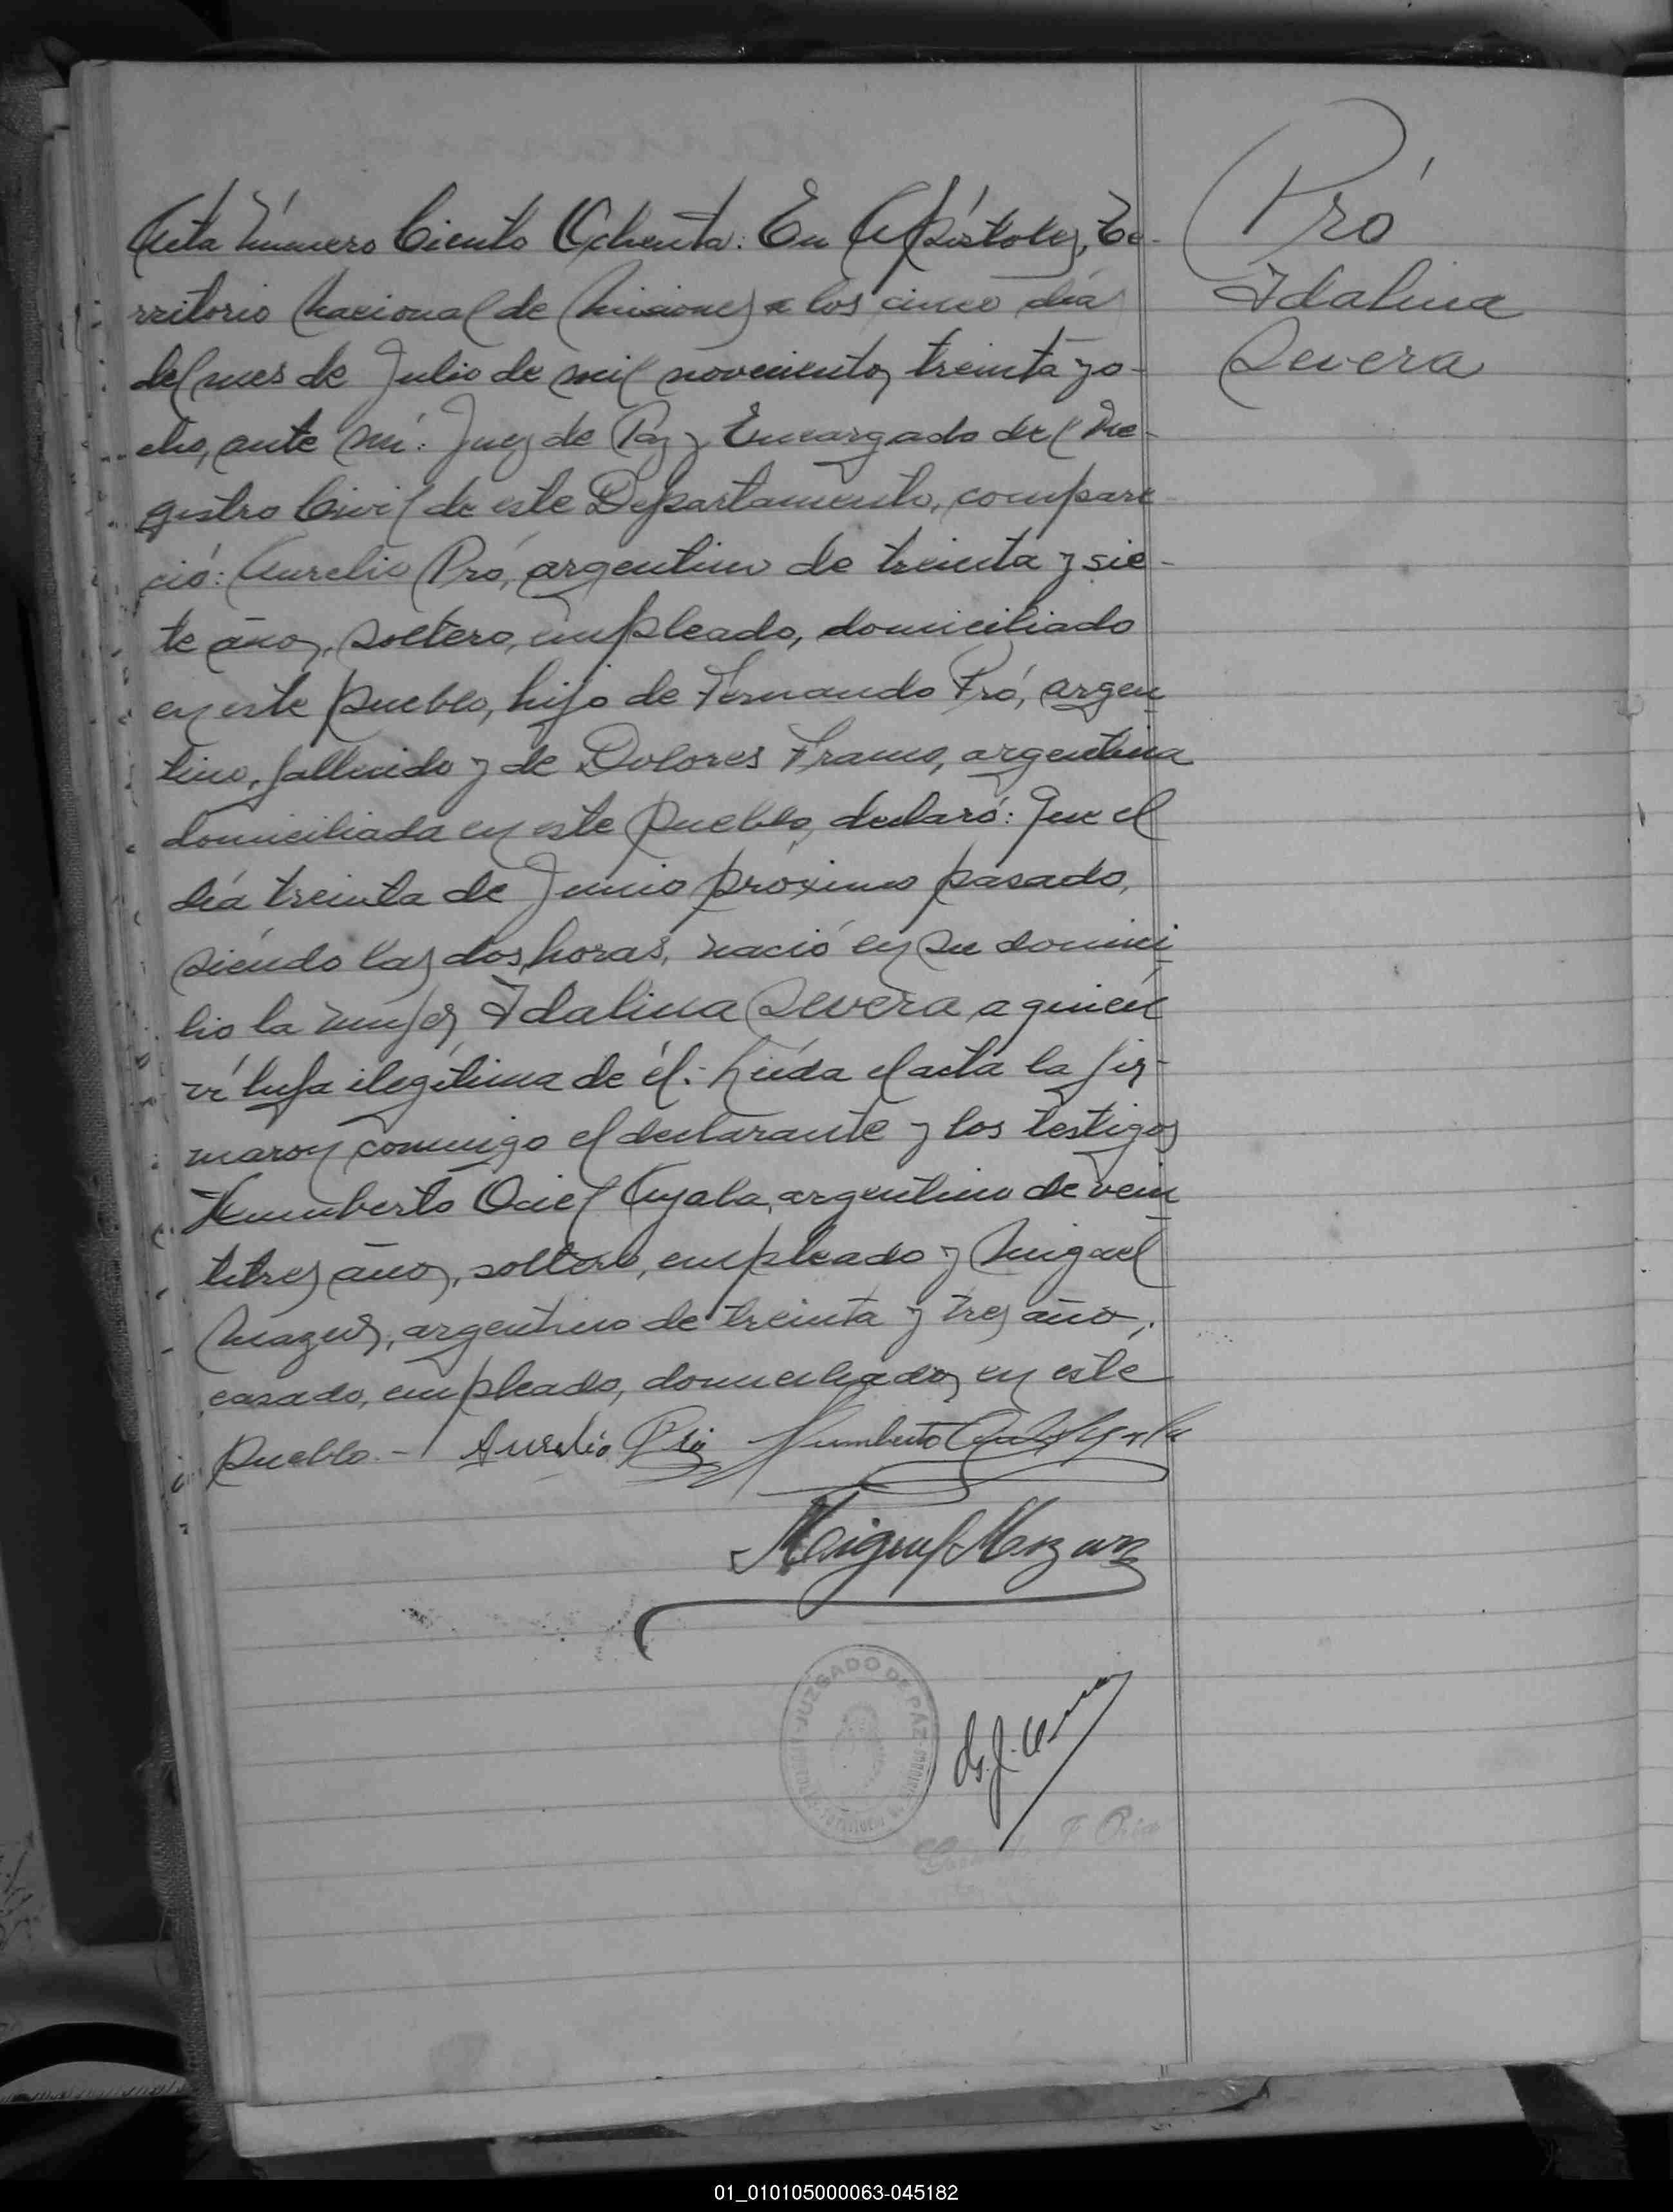 Acta número Ciento Ochenta: En Apóstoles, Te-
rritorio Nacional de Misiones a los cinco días
del mes de Julio de mil novecientos treinta y o-
cho, ante mí: Juez de Paz y Encargado del Re-
gistro Civil de este Departamento, compare-
ció: Aurelio Pró, argentino de treinta y sie-
te años, soltero, empleado, domiciliado
en este pueblo, hijo de Fernando Pró, argen
tino, fallecido y de Dolores Franco, argentina
domiciliada en este pueblo, declaró: Que el
día treinta de Junio próximo pasado,
siendo las dos horas, nació en su domici
lio la mujer Idalina Severa, a quien
ví hija ilegítima de él.- Leída el acta la fir-
maron conmigo el declarante y los testigos
Humberto Ociel Ayala, argentino de vein
titres años, soltero, empleado y Miguel
Mazur, argentino de treinta y tres años,
casado, empleado, domiciliados en este
pueblo.- Aurelio Pró Humberto Ayala
Miguel Mazur
JUZGADO DE PAZ
Pró
Idalina
Severa
01_010105000063-045182